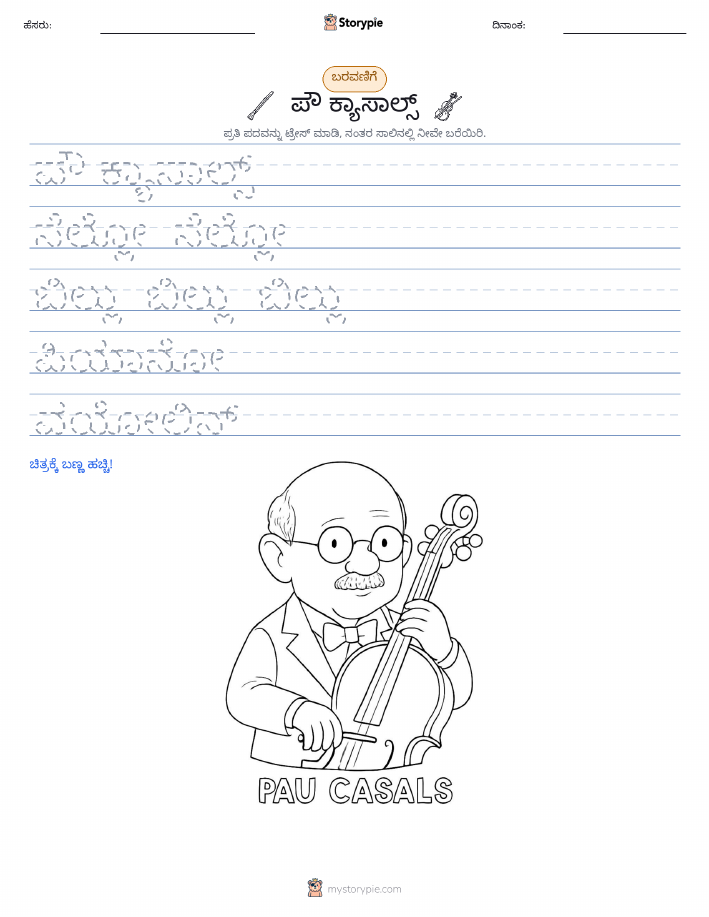 ಹೆಸರು:
Storypie
ದಿನಾಂಕ:
ಬರವಣಿಗೆ
ಪೌ ಕ್ಯಾಸಾಲ್ಸ್
ಪ್ರತಿ ಪದವನ್ನು ಟ್ರೇಸ್ ಮಾಡಿ, ನಂತರ ಸಾಲಿನಲ್ಲಿ ನೀವೇ ಬರೆಯಿರಿ.
ಪೌ ಕ್ಯಾಸಾಲ್ಸ್
ಸೆಲ್ಲೋ ಸೆಲ್ಲೋ
ಬಿಲ್ಲು ಬಿಲ್ಲು ಬಿಲ್ಲು
ಪಿಯಾನೋ
ವಯೋಲಿನ್
ಚಿತ್ರಕ್ಕೆ ಬಣ್ಣ ಹಚ್ಚಿ!
PAU CASALS
mystorypie.com